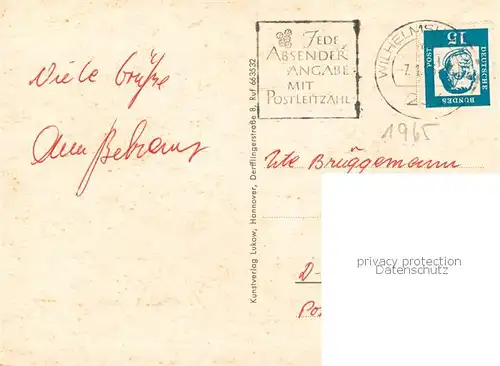 JEDE
ABSENDER
ANGABE
MIT
POSTLEITZAHL
WILHELMSH
7.
2
15
DEUTSCHE
BUNDES
POST
1965
Viele Grüße
Kunstverlag Lukow, Hannover, Derfflingerstraße 8, Ruf 663532
Ute Brüggemann
privacy protection
Datenschutz
D-
Pos